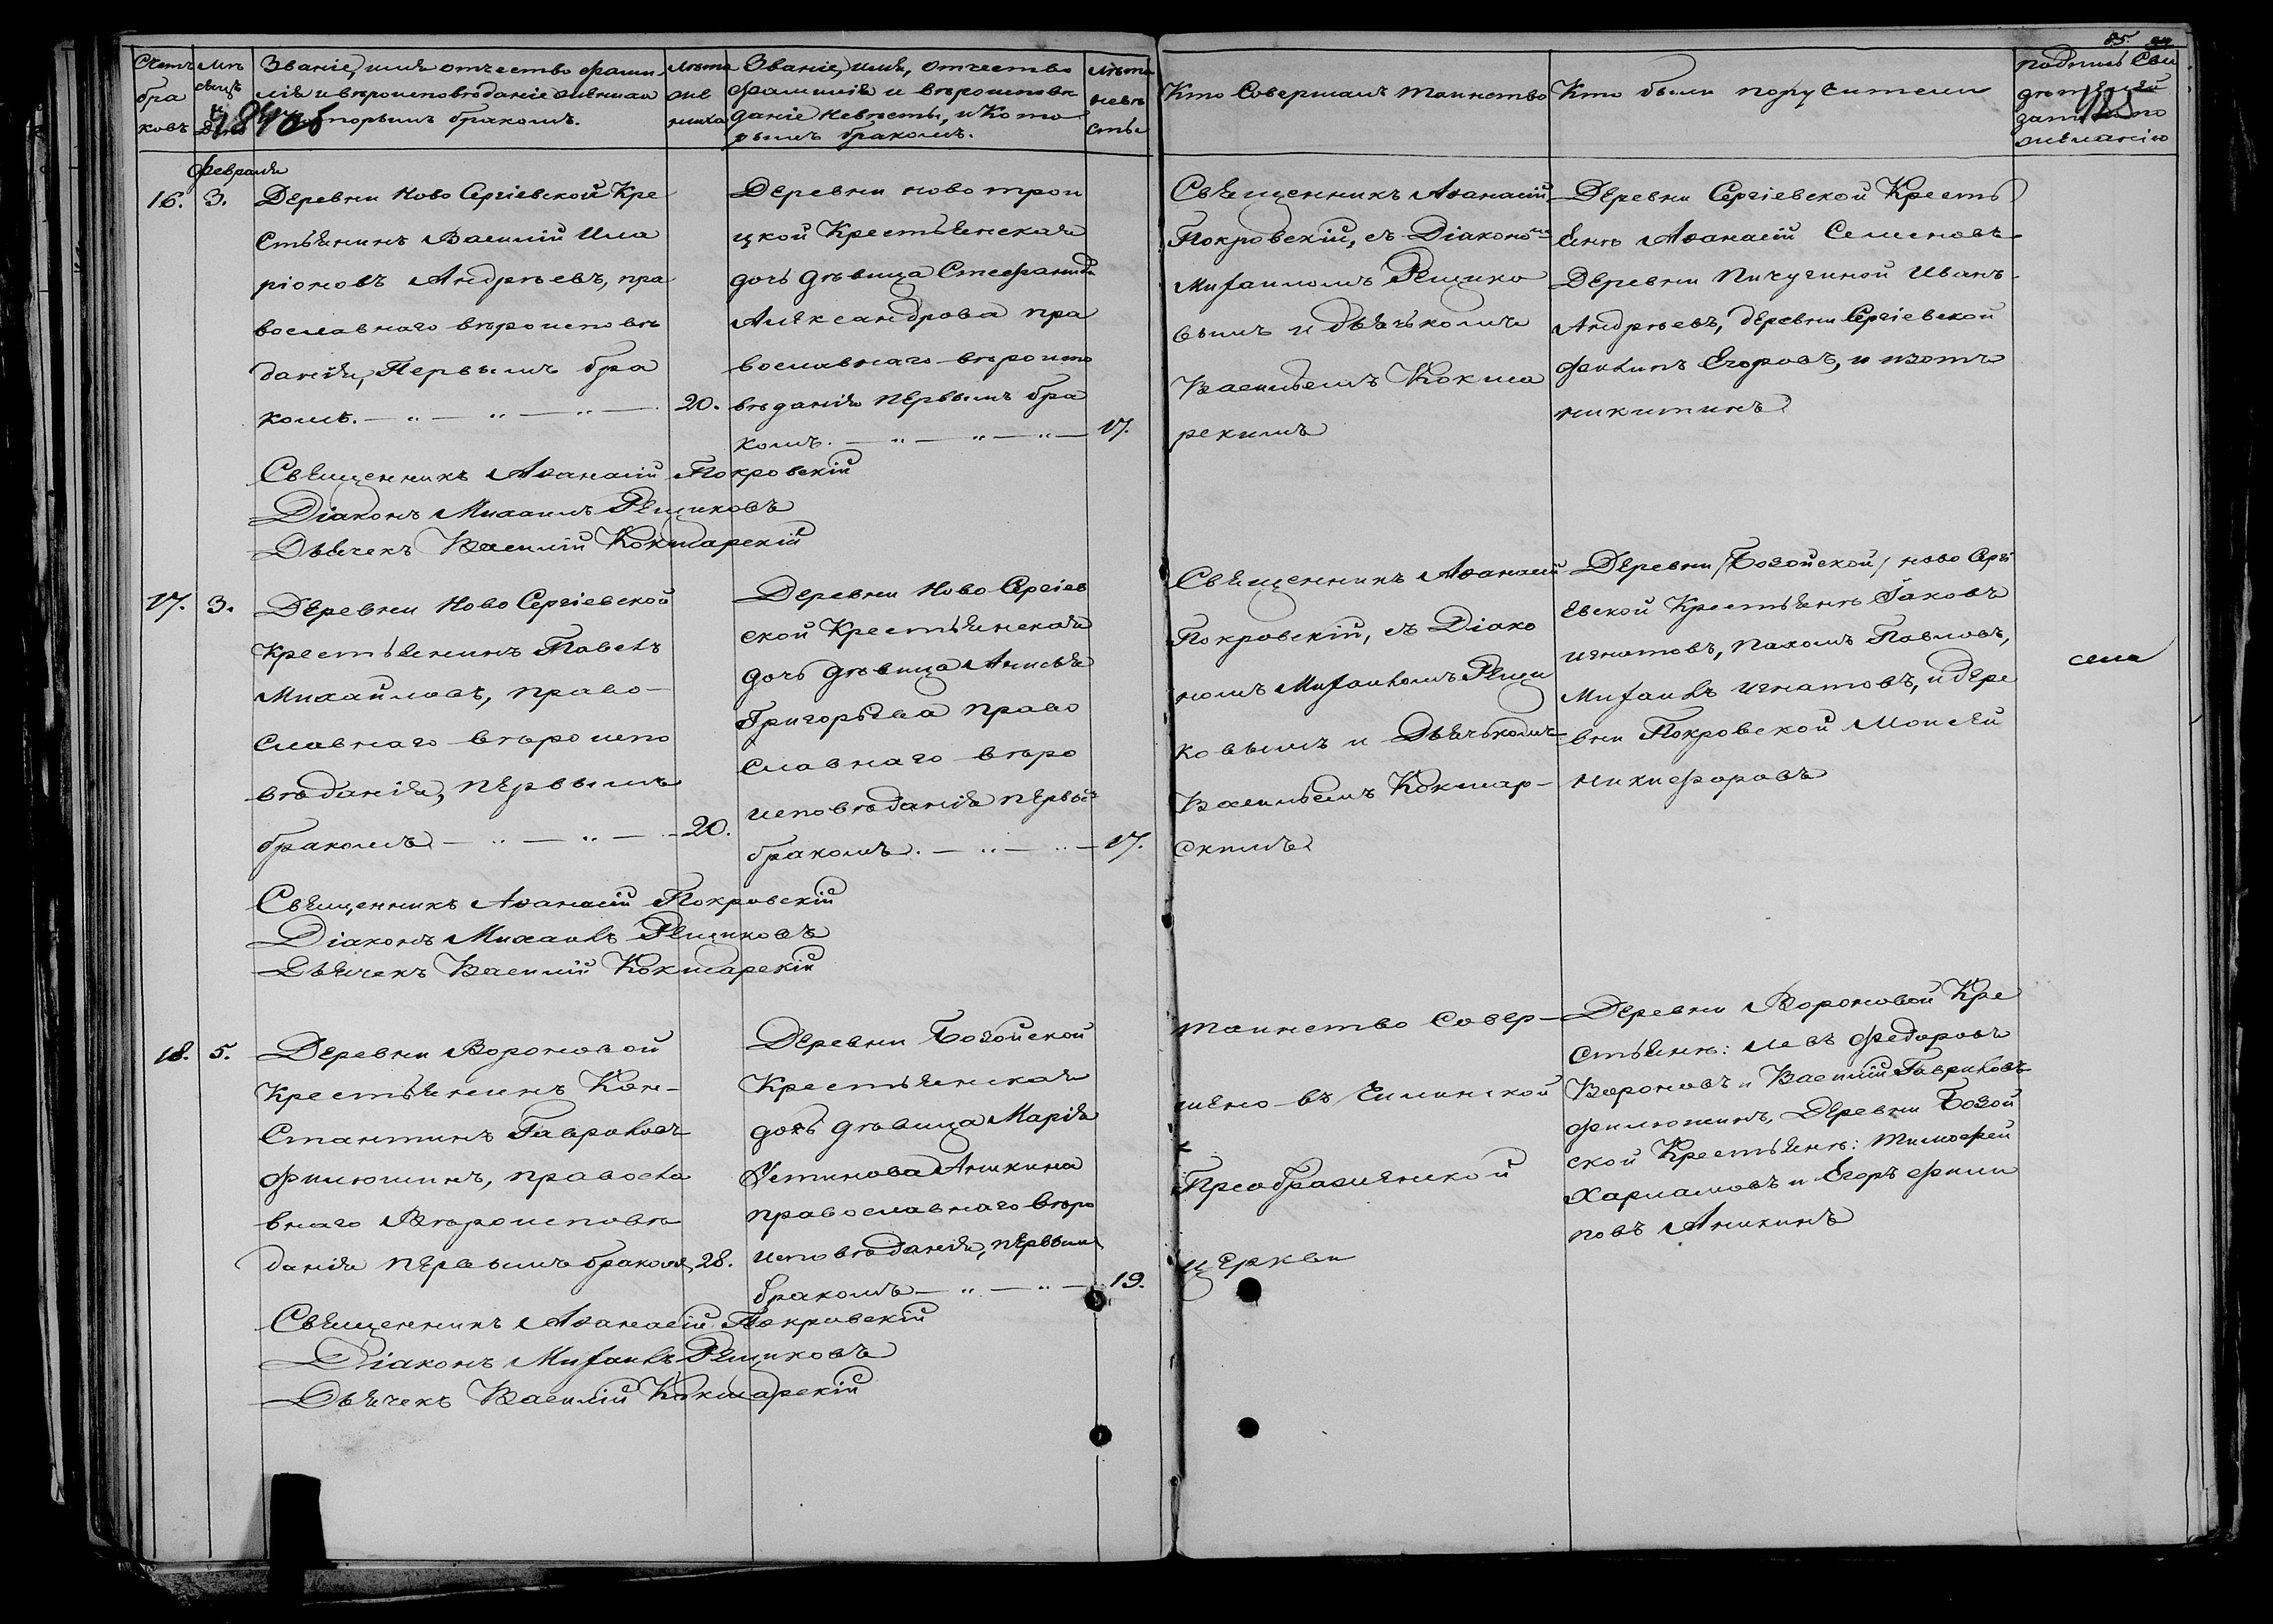 85.
Счетъ бра ковъ
Мѣ сяцъ и день
Званіе, имя отчество фами
лія и вѣроисповѣданіе жениха
и которымъ бракомъ.
Лѣта же ниха
Званіе, имя, отчество
фамилія и вѣроиспове
даніе невѣсты, и кото
рымъ бракомъ.
Лѣта невѣ сты
Кто совершалъ таинство
Кто были поручители
подпись сви
дѣтелей
записи по
желанію
Февраля
16. 3.
Деревни Ново Сергіевской Кре
стьянинъ Василій Ила
ріоновъ Андреевъ, пра
вославнаго вѣроисповѣ
данія, Первымъ бра
комъ. 20.
Деревни ново трои
цкой Крестьянская
дочь дѣвица Стефанида
Александрова пра
вославнаго вѣроиспо
вѣданія первымъ бра
комъ. 17.
Священникъ Аѳанасій
Покровскій, съ Діакономъ
Михаиломъ Рещико
вымъ и дьячькомъ
Васильемъ Кокша
рскимъ
Деревни Сергіевской Кресть
яне Аѳанасій Семеновъ
Деревни Пичугиной Иванъ
Андреевъ, деревни Сергіевской
Филипъ Егоровъ, и изотъ
никитинъ
Священникъ Аѳанасій Покровскій
Діаконъ Михаилъ Рещиковъ
Дьячекъ Василій Кокшарскій
17. 3.
Деревни Ново Сергіевской
Крестьянинъ Павелъ
Михайловъ, право-
славнаго вѣроиспо
вѣданія, первымъ
бракомъ 20.
Деревни Ново Сергіев
ской Крестьянская
дочь дѣвица Анисья
Григорьева право
славнаго вѣро
исповѣданія первымъ
бракомъ. 17.
Священникъ Аѳанасій
Покровскій, съ Діако
номъ Михаиломъ Рещи
ковымъ и Дьячькомъ
Васильемъ Кокшар-
скимъ
Деревни /Бозойской/ ново Серги
евской Крестьяне Іаковъ
игнатовъ, пахомъ Павловъ,
Михаилъ игнатовъ, и дере
вни Покровской Моисей
никифоровъ
Священникъ Аѳанасій Покровскій
Діаконъ Михаилъ Рещиковъ
Дьячекъ Василій Кокшарскій
18. 5.
Деревни Вороновой
Крестьянинъ Кон-
стантинъ Гавриловъ
Филюшинъ, правосла
внаго Вѣроисповѣ
данія первымъ бракомъ, 28.
Деревни Бозойской
Крестьянская
дочь дѣвица Марія
Устинова Аникина
православнаго вѣро
исповѣданія, первымъ
бракомъ 19.
таинство совер-
шено въ
Преображенской
церкви
Деревни Вороновой Кре
стьяне: Левъ Федоровъ
Вороновъ и Василій Гавриловъ
Филюшинъ, Деревни Бозой
ской Крестьяне: Тимофей
Харламовъ и Егоръ Фили
повъ Аникинъ
Священникъ Аѳанасій Покровскій
Діаконъ Михаилъ Рещиковъ
Дьячекъ Василій Кокшарскій